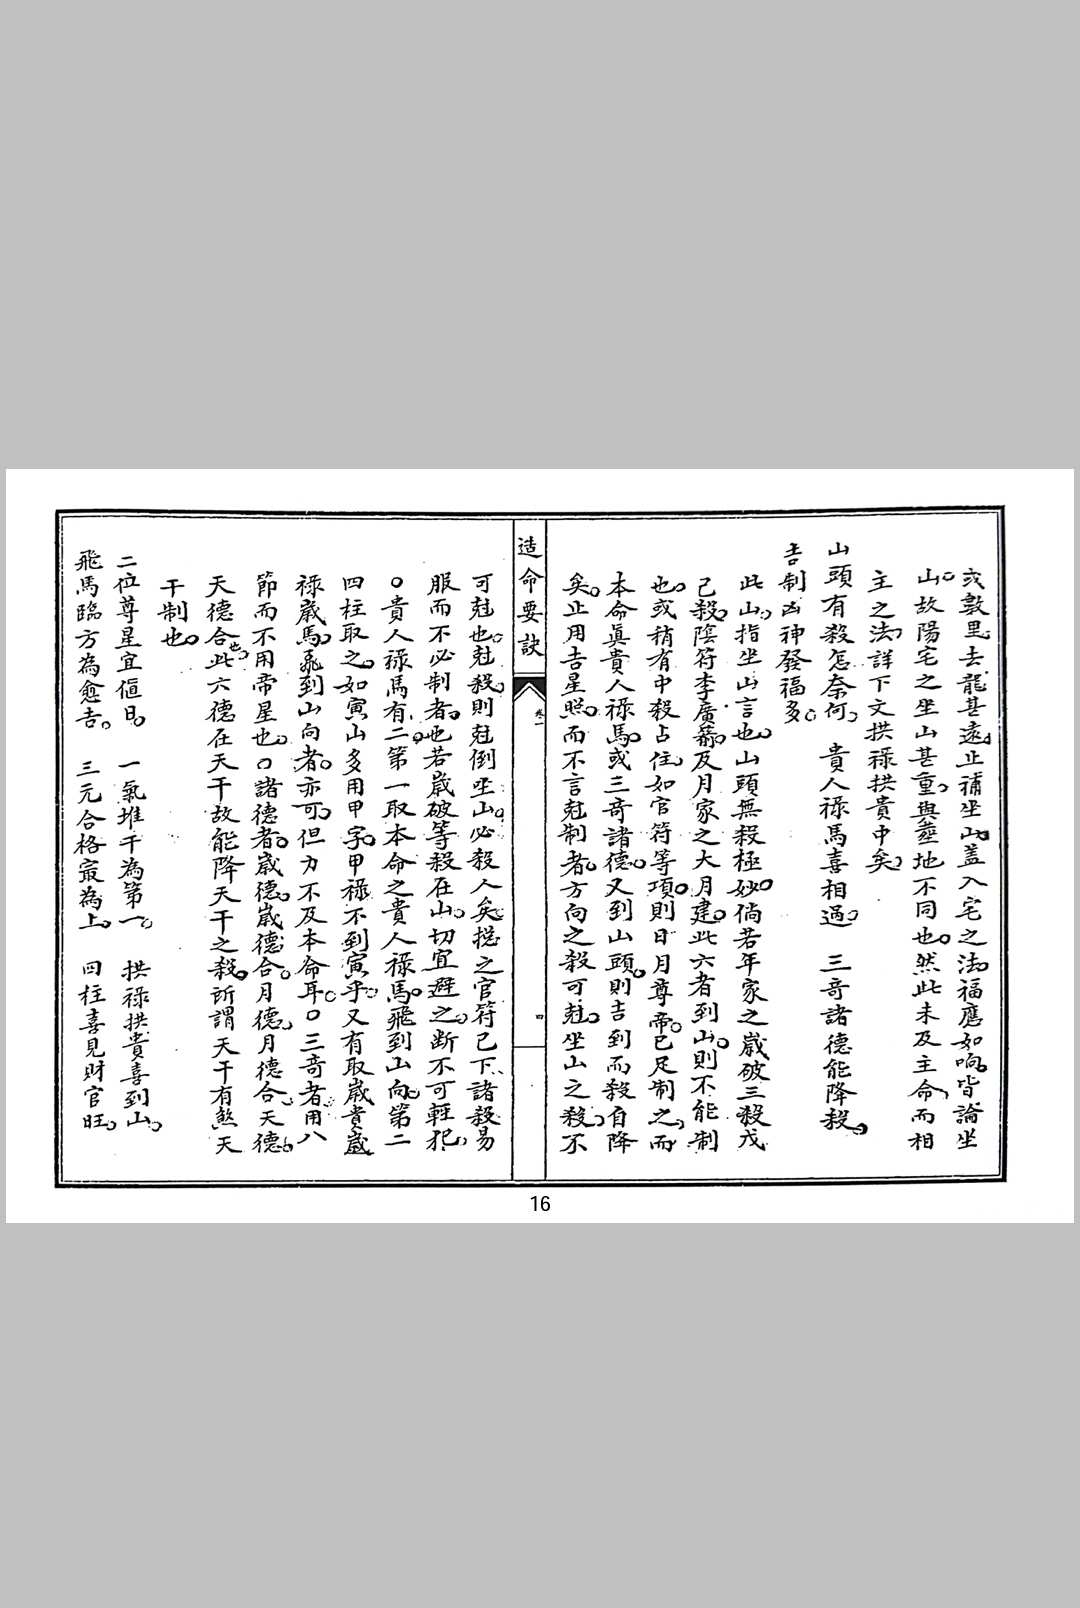 或數里去龍甚遠止補坐山蓋入宅之法福應如响皆論坐
山故陽宅之坐山甚重與塟地不同也然此未及主命而相
主之法詳下文拱祿拱貴中矣
山頭有殺怎奈何　貴人祿馬喜相遇　三竒諸德能降殺
吉制凶神發福多
此山指坐山言也山頭無殺極妙倘若年家之歲破三殺戊
己殺陰符李廣箭及月家之大月建此六者到山則不能制
也或稍有中殺占住如官符等項則日月尊帝已足制之而
本命眞貴人祿馬或三竒諸德又到山頭則吉到而殺自降
矣止用吉星照而不言尅制者方向之殺可尅坐山之殺不
造命要訣
卷一
四
可尅也尅殺則尅倒坐山必殺人矣搃之官符已下諸殺易
服而不必制者也若歲破等殺在山切宜避之断不可輕犯
○貴人祿馬有二第一取本命之貴人祿馬飛到山向第二
四柱取之如寅山多用甲字甲祿不到寅乎又有取歲貴歲
祿歲馬飛到山向者亦可但力不及本命耳○三竒者用八
節而不用帝星也○諸德者歲德歲德合月德月德合天德
天德合也此六德在天干故能降天干之殺所謂天干有煞天
干制也
二位尊星宜傴日　一氣堆干為第一　拱祿拱貴喜到山
飛馬臨方為愈吉　三元合格冣為上　四柱喜見財官旺
16